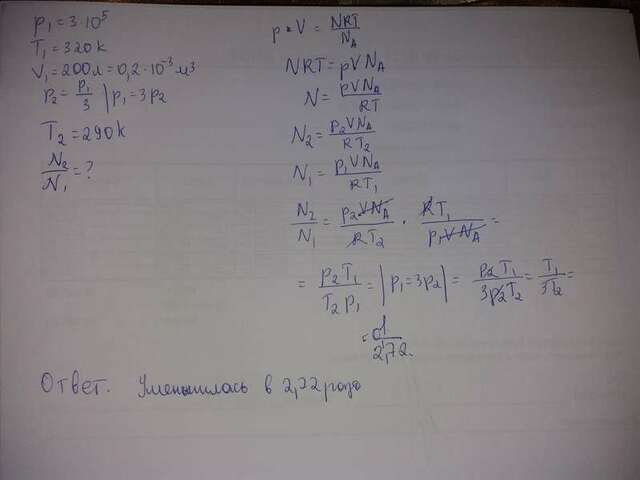 p₁=3·10⁵
T₁=320k
V₁=200л=0,2·10⁻³м³
p₂=p₁/3 | p₁=3p₂
T₂=290k
N₂/N₁=?
p·V=NRT/N_A
NRT=pVN_A
N=pVN_A/RT
N₂=p₂VN_A/RT₂
N₁=p₁VN_A/RT₁
N₂/N₁=p₂VN_A/RT₂·RT₁/p₁VN_A=
=p₂T₁/T₂p₁=|p₁=3p₂|=p₂T₁/3p₂T₂=T₁/3T₂=
=1/2,72.
Ответ. Уменьшилась в 2,72 раза